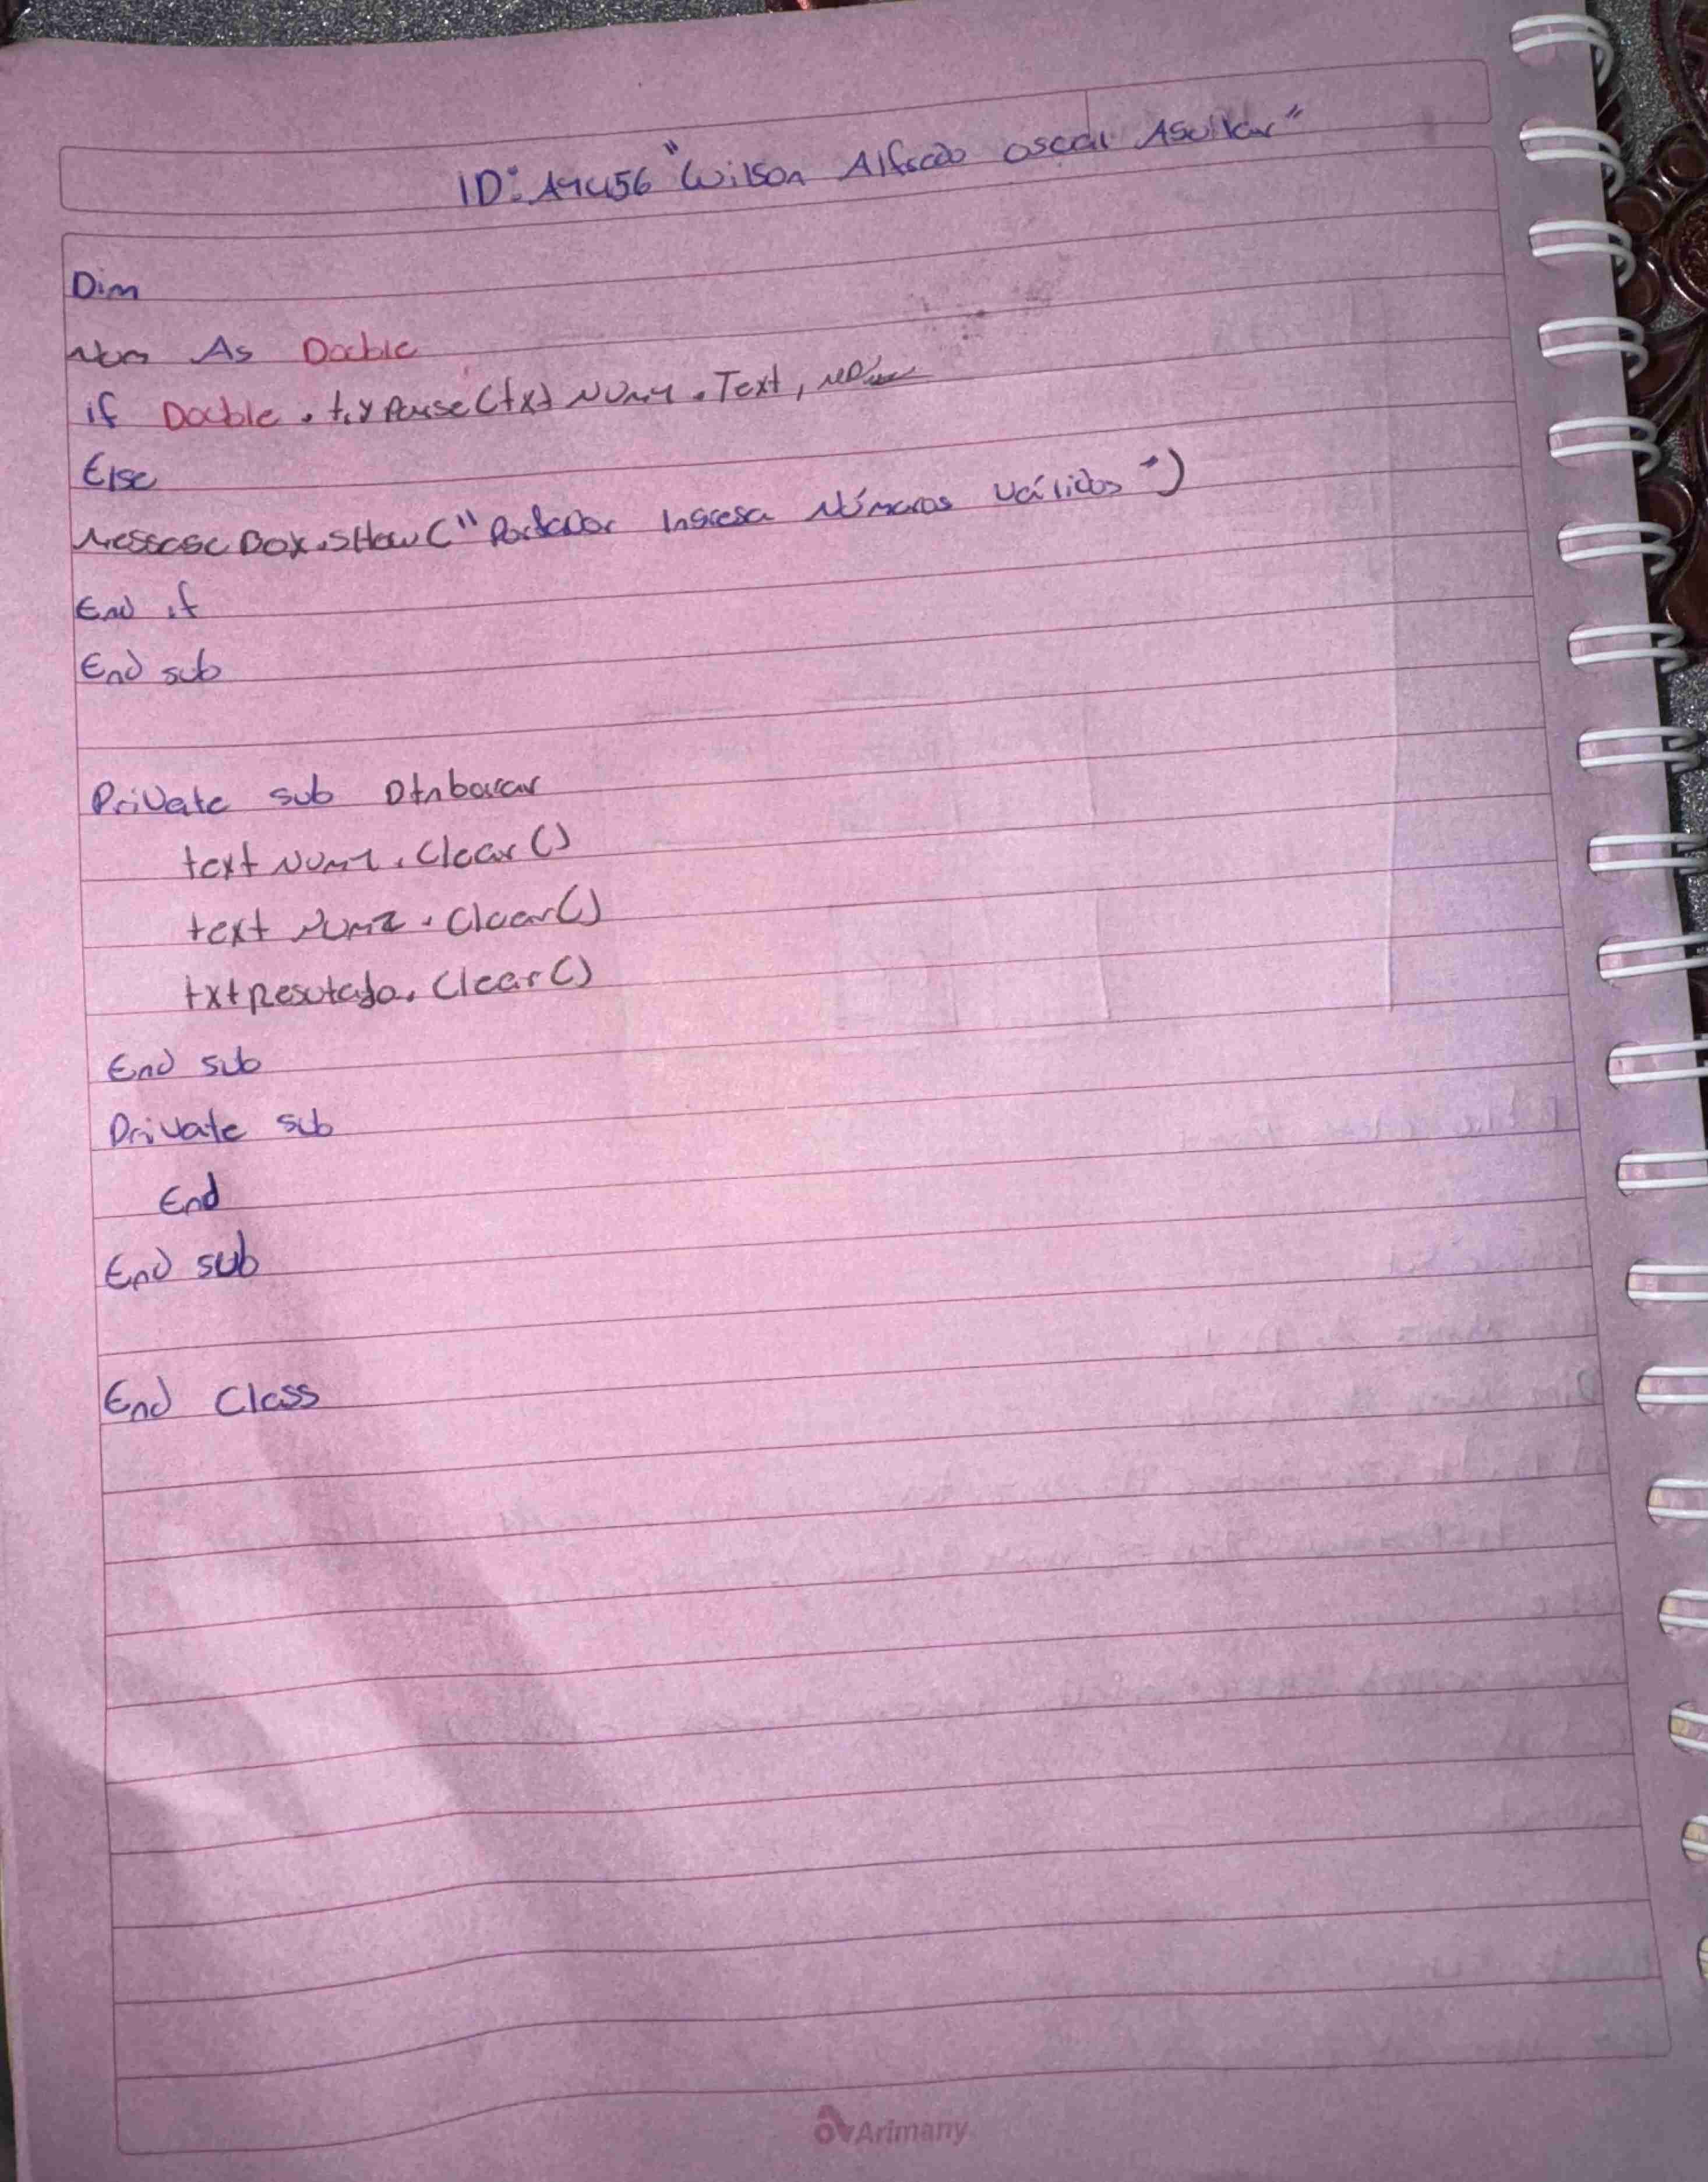 ID: A9456 "Wilson Alfredo oscal Aguilar"
Dim
Num As Double
if Double . tryParse (txt Num1 . Text,
Else
MessageBox.SHow ("Porfavor Ingresa Números Válidos")
End if
End sub
Private sub btnborrar
text Num1 . Clear ()
text Num2 . Clear ()
txtResutado. Clear ()
End sub
Private sub
End
End sub
End Class
Arimany